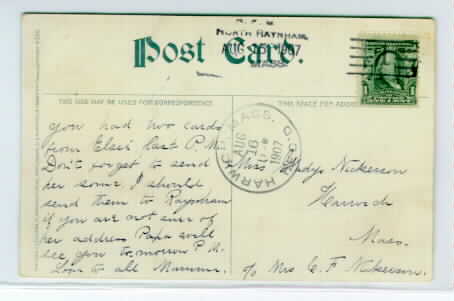 R.F.D.
NORTH RAYNHAM,
AUG 15 1907
MASS.
Post Card.
THIS SIDE MAY BE USED FOR CORRESPONDENCE
THIS SPACE FOR ADDRESS
HARWICH, MASS. REC'D.
AUG
16
1907
1
you had two cards
from Elsie last P.M.
Don't forget to send
her some. I should
send them to Raynham
if you are not sure of
her address Papa will
see you to-morrow P.M.
Love to all Mamma.
Miss Gladys Nickerson
Harwich
Mass.
c/o Mrs C. F. Nickerson.